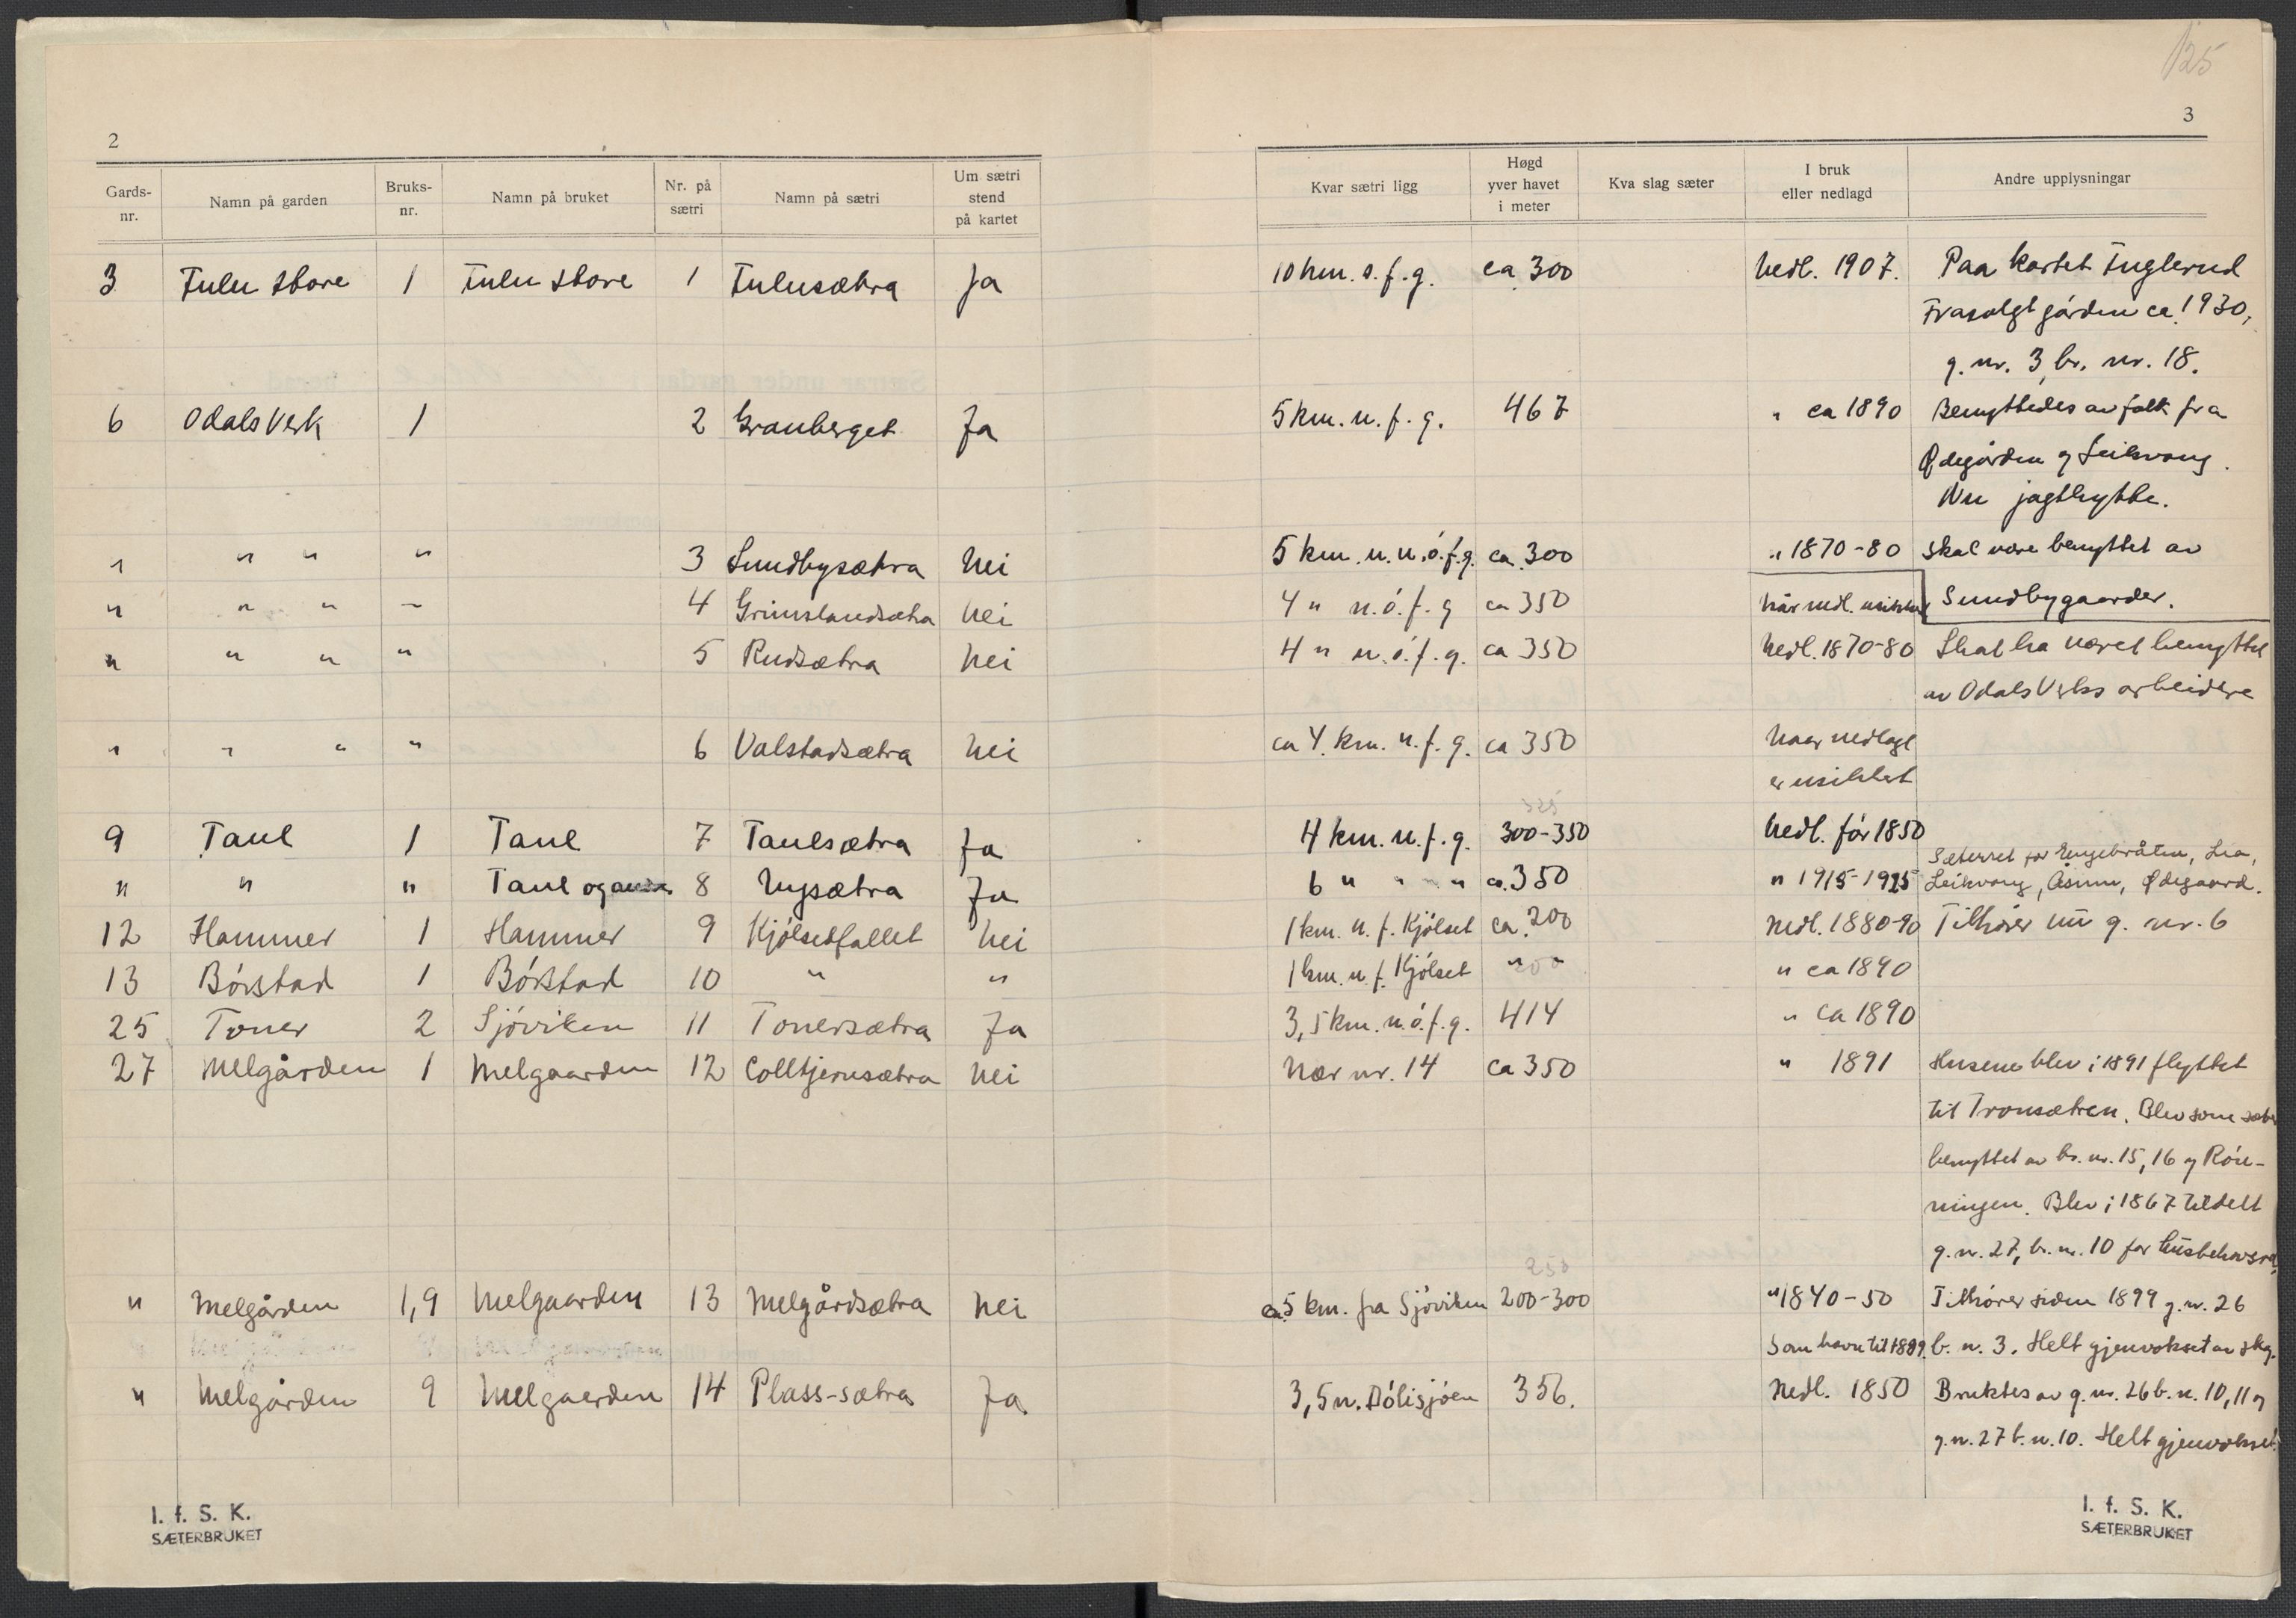 125
2
3
Gards-nr. Namn på garden Bruks-nr. Namn på bruket Nr. på sætri Namn på sætri Um sætri stend på kartet Kvar sætri ligg Høgd yver havet i meter Kva slag sæter I bruk eller nedlagd Andre upplysningar
3 Fulu store 1 Fulu store 1 Fulusætra Ja 10 km. s.f.g. ca 300 Nedl. 1907. Paa kartet Fuglerud
Frasolgt gården ca. 1930,
g. nr. 3, br. nr. 18.
6 Odals Verk 1 2 Granberget Ja 5 km. n.f.g. 467 " ca 1890 Benyttedes av folk fra
Ødegården og Leikvang.
Nu jagthytte.
" " " " 3 Sundbysætra Nei 5 km. n.n.ö.f.g. ca. 300 " 1870-80 Skal være benyttet av
" " " - 4 Grimslandsætra Nei 4 " n.ö.f.g ca 350 Når nedl. usikkert Sundbygaarder.
" " " " 5 Rudsætra Nei 4 " n.ö.f.g. ca 350 Nedl. 1870-80 Skal ha været benyttet
av Odals Verks arbeidere
" " " " 6 Valstadsætra Nei ca 4 km. n.f.g. ca 350 Naar nedlagt
er usikkert
325
9 Taul 1 Taul 7 Taulsætra Ja 4 km. n.f.g. 300-350 Nedl. för 1850
Sæterret for Engebråten, Lia,
" " " Taul og andre 8 Nysætra Ja 6 " " " " ca. 350 " 1915-1925 Leikvang, Åsum, Ødegaard.
12 Hammer 1 Hammer 9 Kjölsetfallet Nei 1 km. n.f. Kjölset ca. 200 Nedl. 1880-90 Tilhörer nu g. nr. 6
13 Börstad 1 Börstad 10 " " 1 km. n.f. Kjölset " " 200 " ca 1890
25 Toner 2 Sjöviken 11 Tonersætra Ja 3,5 km. n.ö.f.g. 414 " ca 1890
27 Melgården 1 Melgaarden 12 Colltjernsætra Nei Nær nr. 14 ca 350 " 1891 Husene blev i 1891 flyttet
til Tronsætren. Blev som sæter
benyttet av br. nr. 15, 16 og Rön-
ningen. Blev i 1867 tildelt
g. nr. 27, br. nr. 10 for husbehovs
250
" Melgården 1,9 Melgaarden 13 Melgårdsætra Nei ca. 5 km. fra Sjöviken 200-300 " 1840-50 Tilhörer siden 1899 g. nr. 26
Som havn til 1899. b. n. 3. Helt gjenvokset av skog.
" Melgården 9 Melgaarden 14 Plass-sætra Ja. 3,5 n. Dölisjöen 356. Nedl. 1850 Bruktes av g. nr. 26 b. n. 10, 11 og
g. n. 27 b. n. 10. Helt gjenvokset.
I. f. S. K.
SÆTERBRUKET
I. f. S. K.
SÆTERBRUKET